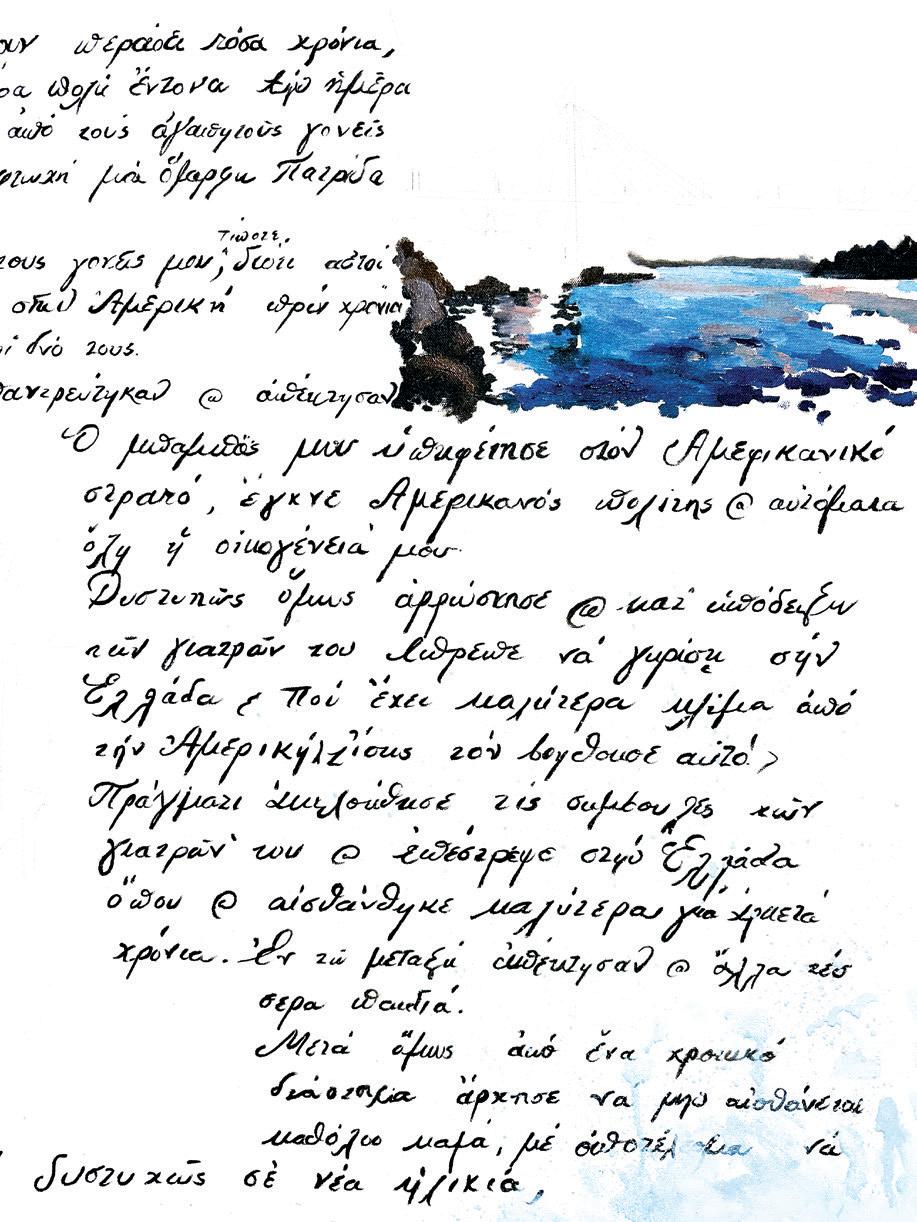 περάσει τόσα χρόνια,
πολύ ἔντονα τήν ἡμέρα
ἀπό τούς ἀγαπητούς γονεῖς
φτωχή μιά ὄμορφη Πατρίδα
τίποτε,
τους γονεῖς μου, διότι αὐτοί
στήν Ἀμερική πρίν χρόνια
δυό τους.
παντρεύτηκαν @ ἀπέκτησαν
Ὁ μπαμπάς μου ὑπηρέτησε στόν Ἀμερικανικό
στρατό, ἔγινε Ἀμερικανός πολίτης @ αὐτόματα
ὅλη ἡ οἰκογένειά μου
Δυστυχῶς ὅμως ἀρρώστησε @ κατ' ὑπόδειξιν
τῶν γιατρῶν του ἔπρεπε νά γυρίσῃ στήν
Ἑλλάδα ( πού ἔχει καλύτερα κλίμα ἀπό
τήν Ἀμερική, ἴσως τόν βοηθοῦσε αὐτό )
Πράγματι ἀκολούθησε τίς συμβουλές τῶν
γιατρῶν του @ ἐπέστρεψε στήν Ἑλλάδα
ὅπου @ αἰσθάνθηκε καλύτερα γιά ἀρκετά
χρόνια. Ἐν τῷ μεταξύ ἀπέκτησαν @ ἄλλα τέσ
σερα παιδιά.
Μετά ὅμως ἀπό ἕνα χρονικό
διάστημα ἄρχησε να μήν αἰσθάνεται
καθόλου καλά, μέ ἀποτέλεσμα νά
δυστυχῶς σέ νέα ἡλικία,